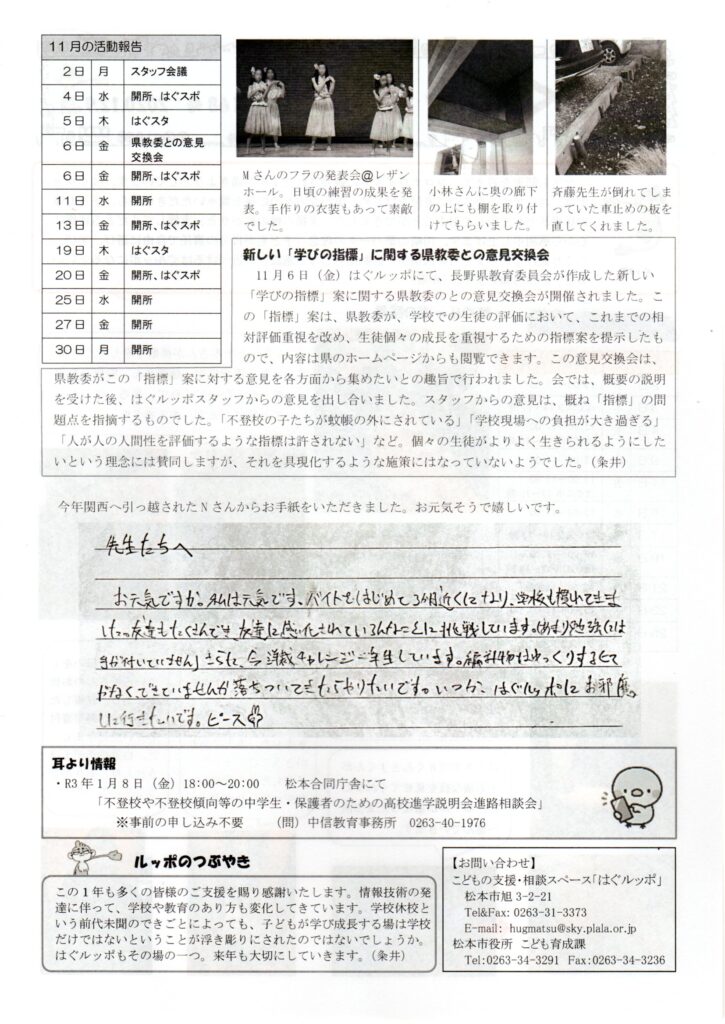 11月の活動報告
2日 月 スタッフ会議
4日 水 開所、はぐスポ
5日 木 はぐスタ
6日 金 県教委との意見
交換会
6日 金 開所、はぐスポ
11日 水 開所
13日 金 開所、はぐスポ
19日 木 はぐスタ
20日 金 開所、はぐスポ
25日 水 開所
27日 金 開所
30日 月 開所
Mさんのフラの発表会@レザン
ホール。日頃の練習の成果を発
表。手作りの衣装もあって素敵
でした。
小林さんに奥の廊下
の上にも棚を取り付
けてもらいました。
斉藤先生が倒れてしま
っていた車止めの板を
直してくれました。
新しい「学びの指標」に関する県教委との意見交換会
11月6日（金）はぐルッポにて、長野県教育委員会が作成した新しい
「学びの指標」案に関する県教委のとの意見交換会が開催されました。こ
の「指標」案は、県教委が、学校での生徒の評価において、これまでの相
対評価重視を改め、生徒個々の成長を重視するための指標案を提示したも
ので、内容は県のホームページからも閲覧できます。この意見交換会は、
県教委がこの「指標」案に対する意見を各方面から集めたいとの趣旨で行われました。会では、概要の説明
を受けた後、はぐルッポスタッフからの意見を出し合いました。スタッフからの意見は、概ね「指標」の問
題点を指摘するものでした。「不登校の子たちが蚊帳の外にされている」「学校現場への負担が大き過ぎる」
「人が人の人間性を評価するような指標は許されない」など。個々の生徒がよりよく生きられるようにした
いという理念には賛同しますが、それを具現化するような施策にはなっていないようでした。（粂井）
今年関西へ引っ越されたNさんからお手紙をいただきました。お元気そうで嬉しいです。
先生たちへ
お元気ですか。私は元気です。バイトもはじめて3ヶ月近くになり、学校も慣れてきま
した。友達もたくさんでき 友達に感化されていろんなことに挑戦しています。(あまり勉強には
手が付いていません) さらに、今 洋裁チャレンジ一年生しています。編み物はゆっくりするとて
がなくできていませんが 落ちついてきたらやりたいです。いつか、はぐルッポにお邪魔
しに行きたいです。ピース
耳より情報
・R3年1月8日（金）18:00～20:00 松本合同庁舎にて
「不登校や不登校傾向等の中学生・保護者のための高校進学説明会進路相談会」
※事前の申し込み不要 （問）中信教育事務所 0263-40-1976
ルッポのつぶやき
この1年も多くの皆様のご支援を賜り感謝いたします。情報技術の発
達に伴って、学校や教育のあり方も変化してきています。学校休校と
いう前代未聞のできごとによっても、子どもが学び成長する場は学校
だけではないということが浮き彫りにされたのではないでしょうか。
はぐルッポもその場の一つ。来年も大切にしていきます。（粂井）
【お問い合わせ】
こどもの支援・相談スペース「はぐルッポ」
松本市旭3-2-21
Tel&Fax: 0263-31-3373
E-mail: hugmatsu@sky.plala.or.jp
松本市役所 こども育成課
Tel:0263-34-3291 Fax:0263-34-3236